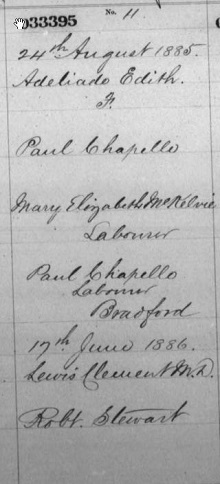 No. 11
033395
24th August 1885.
Adeliado Edith.
F.
Paul Chapello
Mary Elizabeth McKelvie
Labourer
Paul Chapello
Labourer
Bradford
17th June 1886.
Lewis Clement M.D.
Robt. Stewart